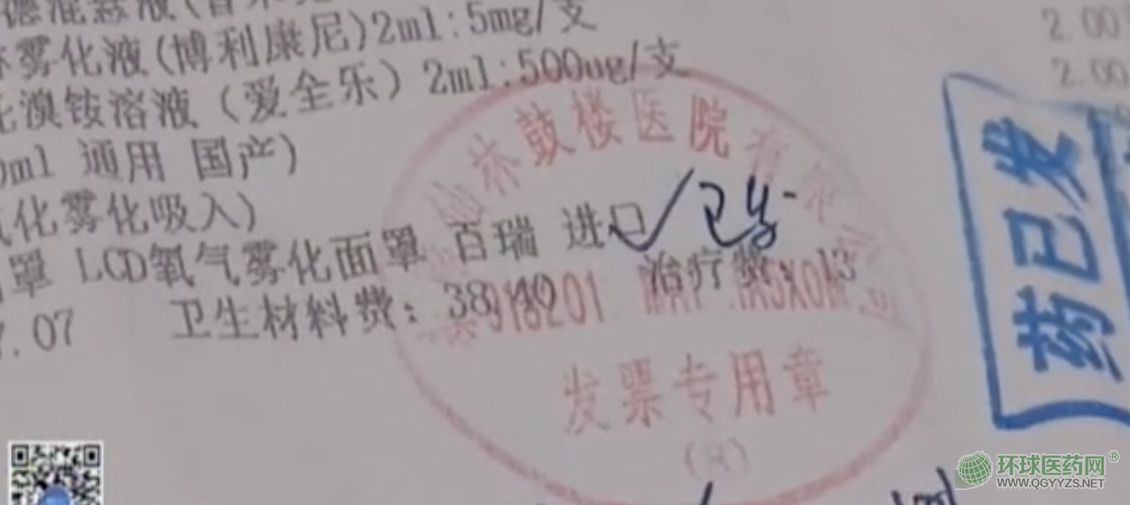 雾化液(博利康尼)2ml:5mg/支
2.00
溴铵溶液(爱全乐)2ml:500ug/支
2.00
0ml 通用 国产)
化雾化吸入)
罩 LCD氧气雾化面罩 百瑞 进口
卫生
7.07 卫生材料费: 38.40 治疗费: 13
林鼓楼医院有
发票专用章
药已发
环球医药网®
WWW.QGYYZS.NET